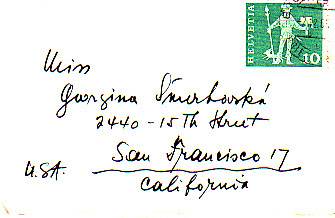 HELVETIA
10
Miss
Georgina Smerhovská
2440-15Th Street
San Francisco 17
U.S.A.
California